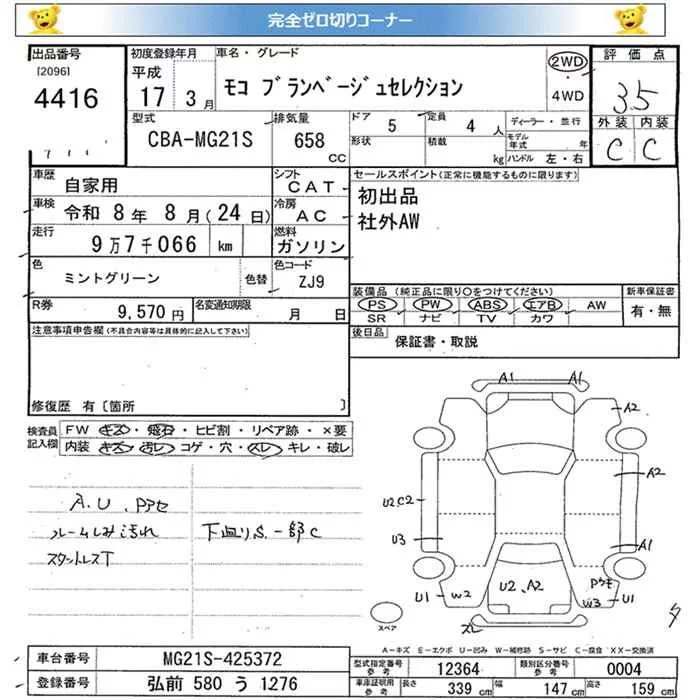 完全ゼロ切りコーナー
出品番号
[2096]
4416
初度登録年月
平成
17 3月
車名・グレード
モコ ブランベージュセレクション
2WD
・
4WD
評価点
3.5
外装 内装
C C
型式
CBA-MG21S
排気量
658
CC
ドア
5
定員
4 人
形状
積載
kg
ディーラー・並行
モデル
年式 年
ハンドル 左・右
車歴
自家用
シフト
CAT
車検
令和 8年 8月(24日)
冷房
AC
走行
9万7千066 km
燃料
ガソリン
色
ミントグリーン
色替
色コード
ZJ9
R券
9,570円
名変通知期限
月 日
セールスポイント(正常に機能するものに限ります)
初出品
社外AW
装備品(純正品に限り○をつけてください)
PS PW ABS エアB AW
SR ナビ TV カワ
新車保証書
有・無
後日品
保証書・取説
注意事項申告欄(不具合内容等は具体的に記入して下さい)
修復歴 有〔箇所 〕
検査員
記入欄
FW キズ・飛石・ヒビ割・リペア跡・×要
内装 キズ・汚レ・コゲ・穴・スレ・キレ・破レ
A.U.Pアセ
ルームしみ汚れ
スタットレスT
下廻りS.一部C
A1 A1
A2
A2
U2C2
U3
A1
U1 W2
U2.A2
Pウキ
W3 U1
スレ
スペア
タ
A-キズ E-エクボ U-凹み W-補修跡 S-サビ C-腐食 XX-交換済
車台番号
MG21S-425372
登録番号
弘前 580 う 1276
型式指定番号
参考
12364
類別区分番号
参考
0004
車庫証明用
参考
長さ
339 cm
幅
147 cm
高さ
159 cm